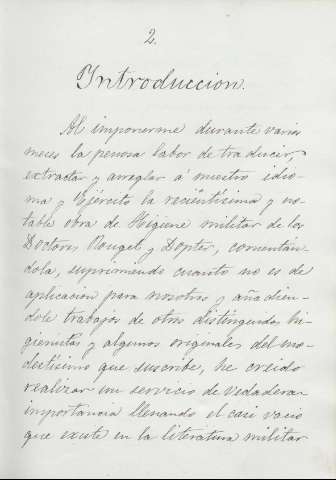 2.
Introduccion.
Al imponerme durante varios
meses la penosa labor de traducir,
extractar y arreglar á nuestro idio-
ma y Ejército la recientísima y no-
table obra de Higiene militar de los
Doctores Rouget y Dopter, comentán-
dola, suprimiendo cuanto no es de
aplicación para nosotros y añadien-
dole trabajos de otros distinguidos hi-
gienistas y algunos originales del mo-
destísimo que suscribe, he creido
realizar un servicio de verdadera
importancia llenando el casi vacio
que existe en la literatura militar